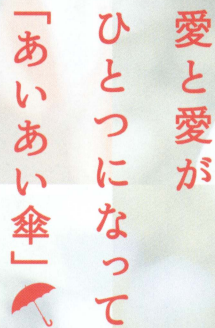 愛と愛が
ひとつになって
「あいあい傘」